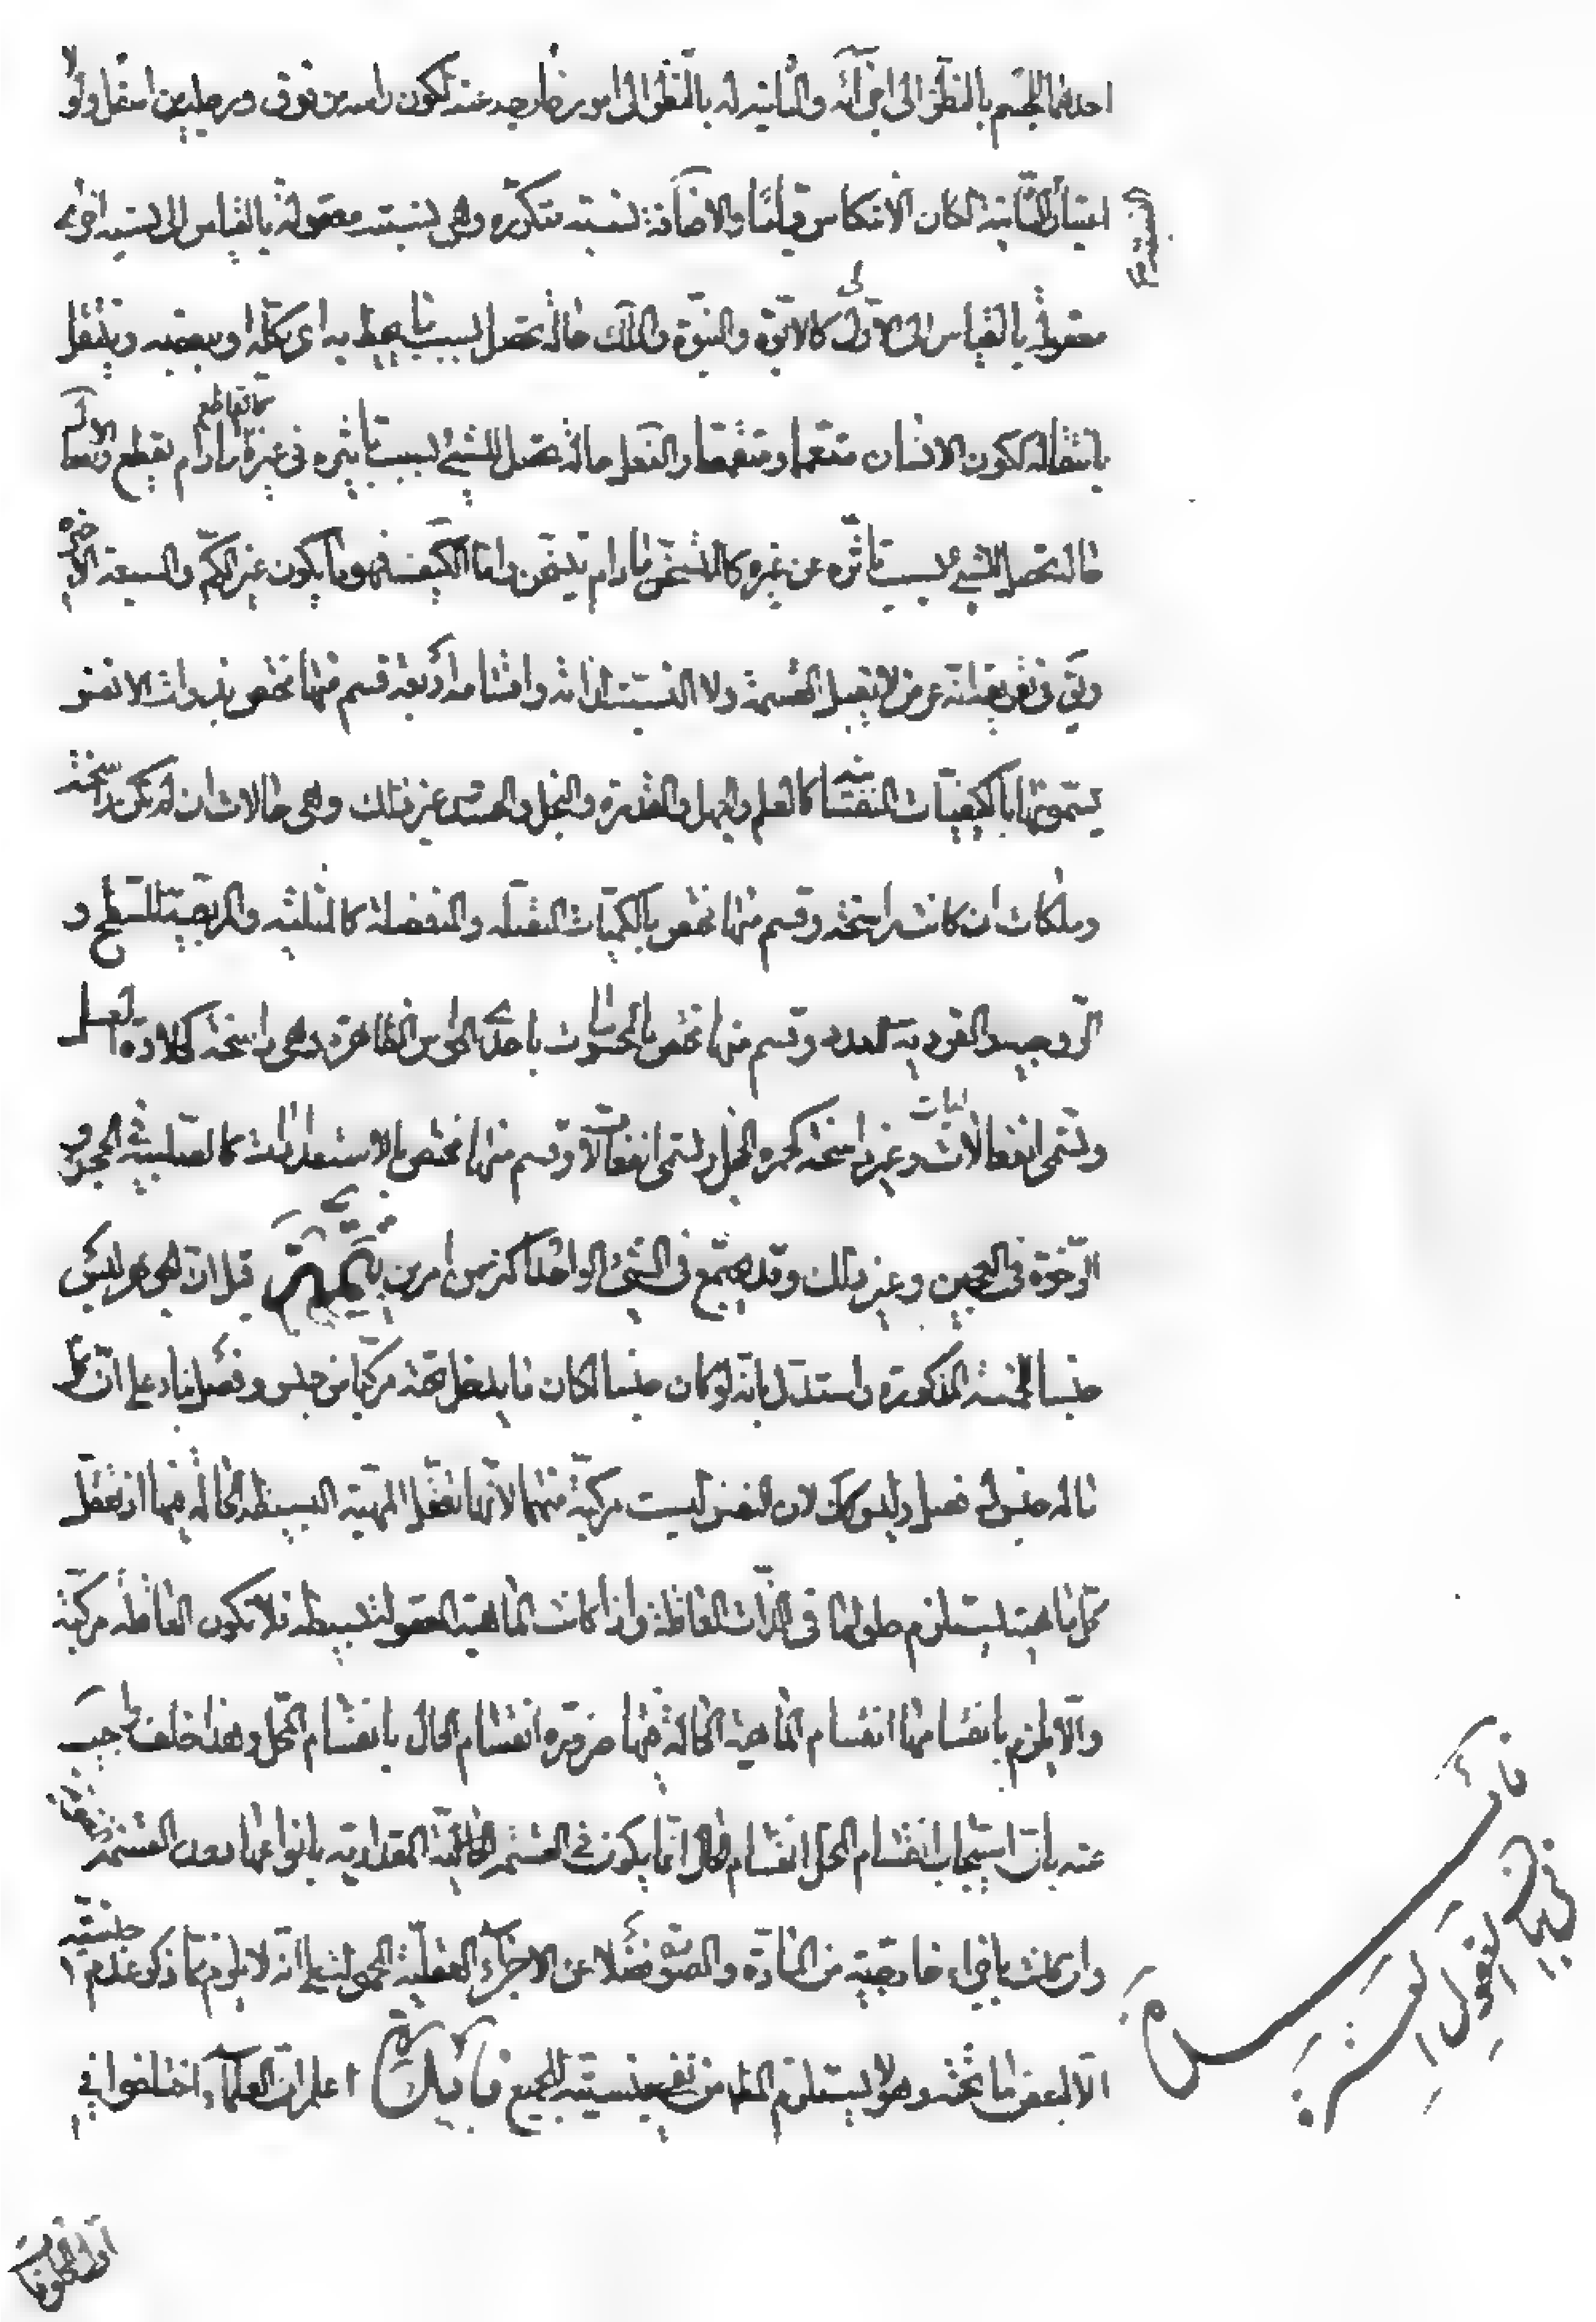 احدهما للجسم بالنظر الى اجزائه والثانية له بالنظر الى امور خارجه عنه ككون راسه من فوق ورجليه من اسفل ولولا
اعتبار الثانية لكان الانتكاس قياما والاضافة نسبته متكرره وهى نسبته معقولة بالقياس الى نسبته اخرى
النسبة
معقولة بالقياس الى الاولى كالابوة والبنوة والملك حالة تحصل بسبب ما يحيط به اى بكله او ببعضه وينتقل
بانتقاله ككون الانسان متعمما ومتقمصا والفعل حالة تحصل للشئ بسبب تاثيره فى غيره كالقاطع مادام يقطع والانفعال
حالة تحصل للشئ بسبب تاثره عن غيره كالمتسخن مادام يتسخن واما الكيف فهو ما يكون غير الكم والسبعة الاخيره
ويق فى تعريفه انه عرض لا يقبل القسمة ولا النسبة لذاته واقسامه اربعة قسم منها تختص بذوات الانفس
يسمونها بالكيفيات النفسانيه كالعلم والجهل والقدرة والبخل والحسد غير ذلك وهى حالات ان لم تكن راسخة
وملكات ان كانت راسخة وقسم منها تختص بالكميات المتصله والمنفصلة كالمثلثيه والمربعية للسطح و
الزوجيه والفردية للعدد وقسم منها تختص بالمحسوسات باحدى الحواس الظاهرة وهى راسخة كحلاوة العسل
وتسمى انفعاليات وغير راسخة كحمرة الخجل وتسمى انفعالات وقسم منها تختص بالاستعدادات كالصلبية فى الحجر و
الرخوة فى العجين وغير ذلك وقد يجتمع فى الشئ الواحد اكثر من امرين تتميم قيل ان الجوهر ليس
جنسا للخمسة المذكورة واستدل بانه لو كان جنسا لكان ما يدخل تحته مركبا من جنس وفصل بناء على ان كل
ماله جنس له فصل وليس كك لان النفس ليست مركبة منهما لانها تعقل المهية البسيطه الحالة فيها اذ تعقل
كل ماهية يستلزم حلولها فى الذات العاقلة واذا كانت الماهية المعقولة بسيطه فلا تكون العاقله مركبة
والا يلزم بانقسامها انقسام الماهية الحالة فيها ضرورة انقسام الحال بانقسام المحل وهذا خلف واجيب
عنه بان استيجاب انقسام المحل انقسام الحال انما يكون فى القسمة المقدارية بانواعها دون القسمة
وان كانت باجزاء خارجية من المادة والصورة فضلا عن الاجزاء العقلية المحمولة على انه لا يلزم مما ذكر عدم جنسيته
الا لبعض ما تحته وهو لا يستلزم المط من نفى جنسيته للجميع فائدة اعلم ان العلماء اختلفوا فى
فائدة
فى بيان العقول العشرة